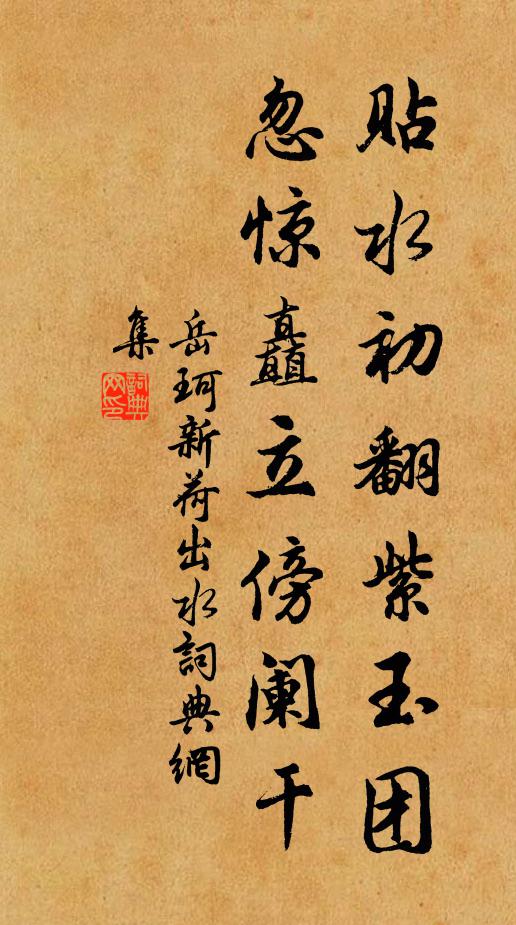 貼水初翻紫玉团
忽惊矗立傍阑干
岳珂新荷出水詞典網
集
詞典
网印